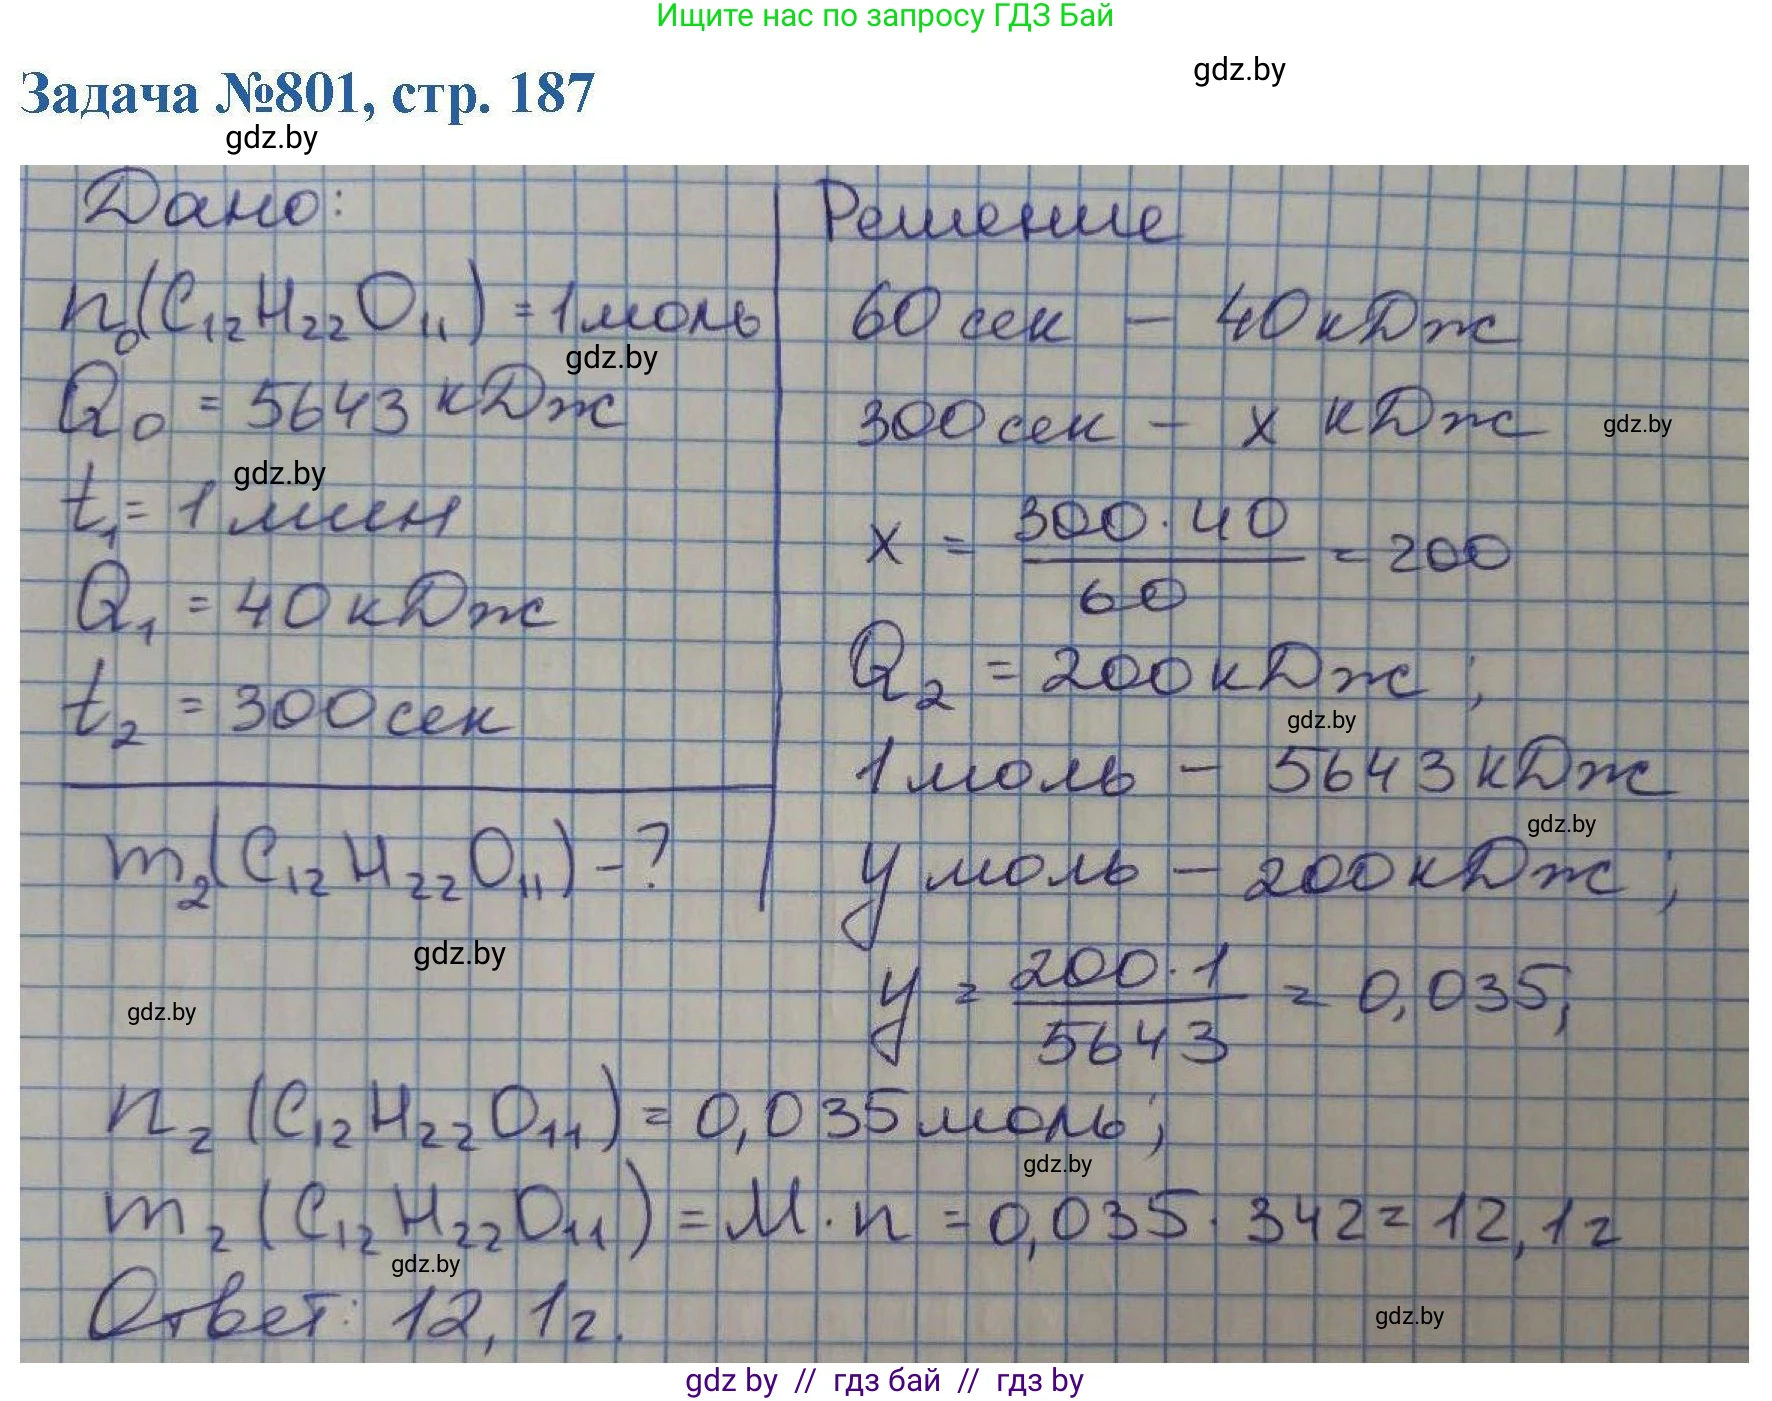 Ищите нас по запросу ГДЗ Бай
Задача №801, стр. 187
gdz.by
gdz.by
Дано:
n₀(C₁₂H₂₂O₁₁) = 1 моль
gdz.by
Q₀ = 5643 кДж
gdz.by
t₁ = 1 мин
Q₁ = 40 кДж
t₂ = 300 сек
m₂(C₁₂H₂₂O₁₁) - ?
gdz.by
gdz.by
Решение
60 сек – 40 кДж
300 сек – x кДж
gdz.by
x = 300 · 40 / 60 = 200
Q₂ = 200 кДж ;
gdz.by
1 моль – 5643 кДж
gdz.by
y моль – 200 кДж ;
y = 200 · 1 / 5643 = 0,035;
n₂ (C₁₂H₂₂O₁₁) = 0,035 моль ;
gdz.by
m₂ (C₁₂H₂₂O₁₁) = M · n = 0,035 · 342 = 12,1 г
gdz.by
Ответ: 12,1 г.
gdz.by
gdz by // гдз бай // гдз by